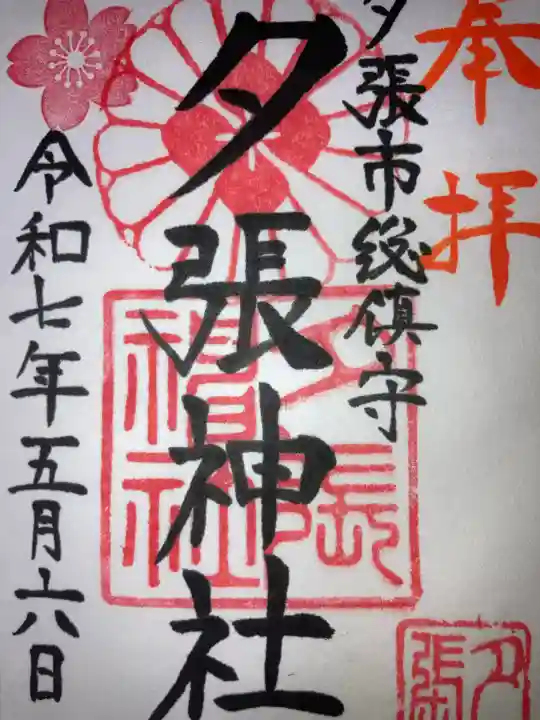 奉拝
夕張市総鎮守
夕張神社
令和七年五月十八日
夕張神社